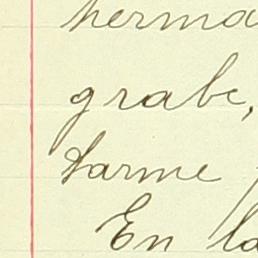 herma
grabe,
tarme
En la